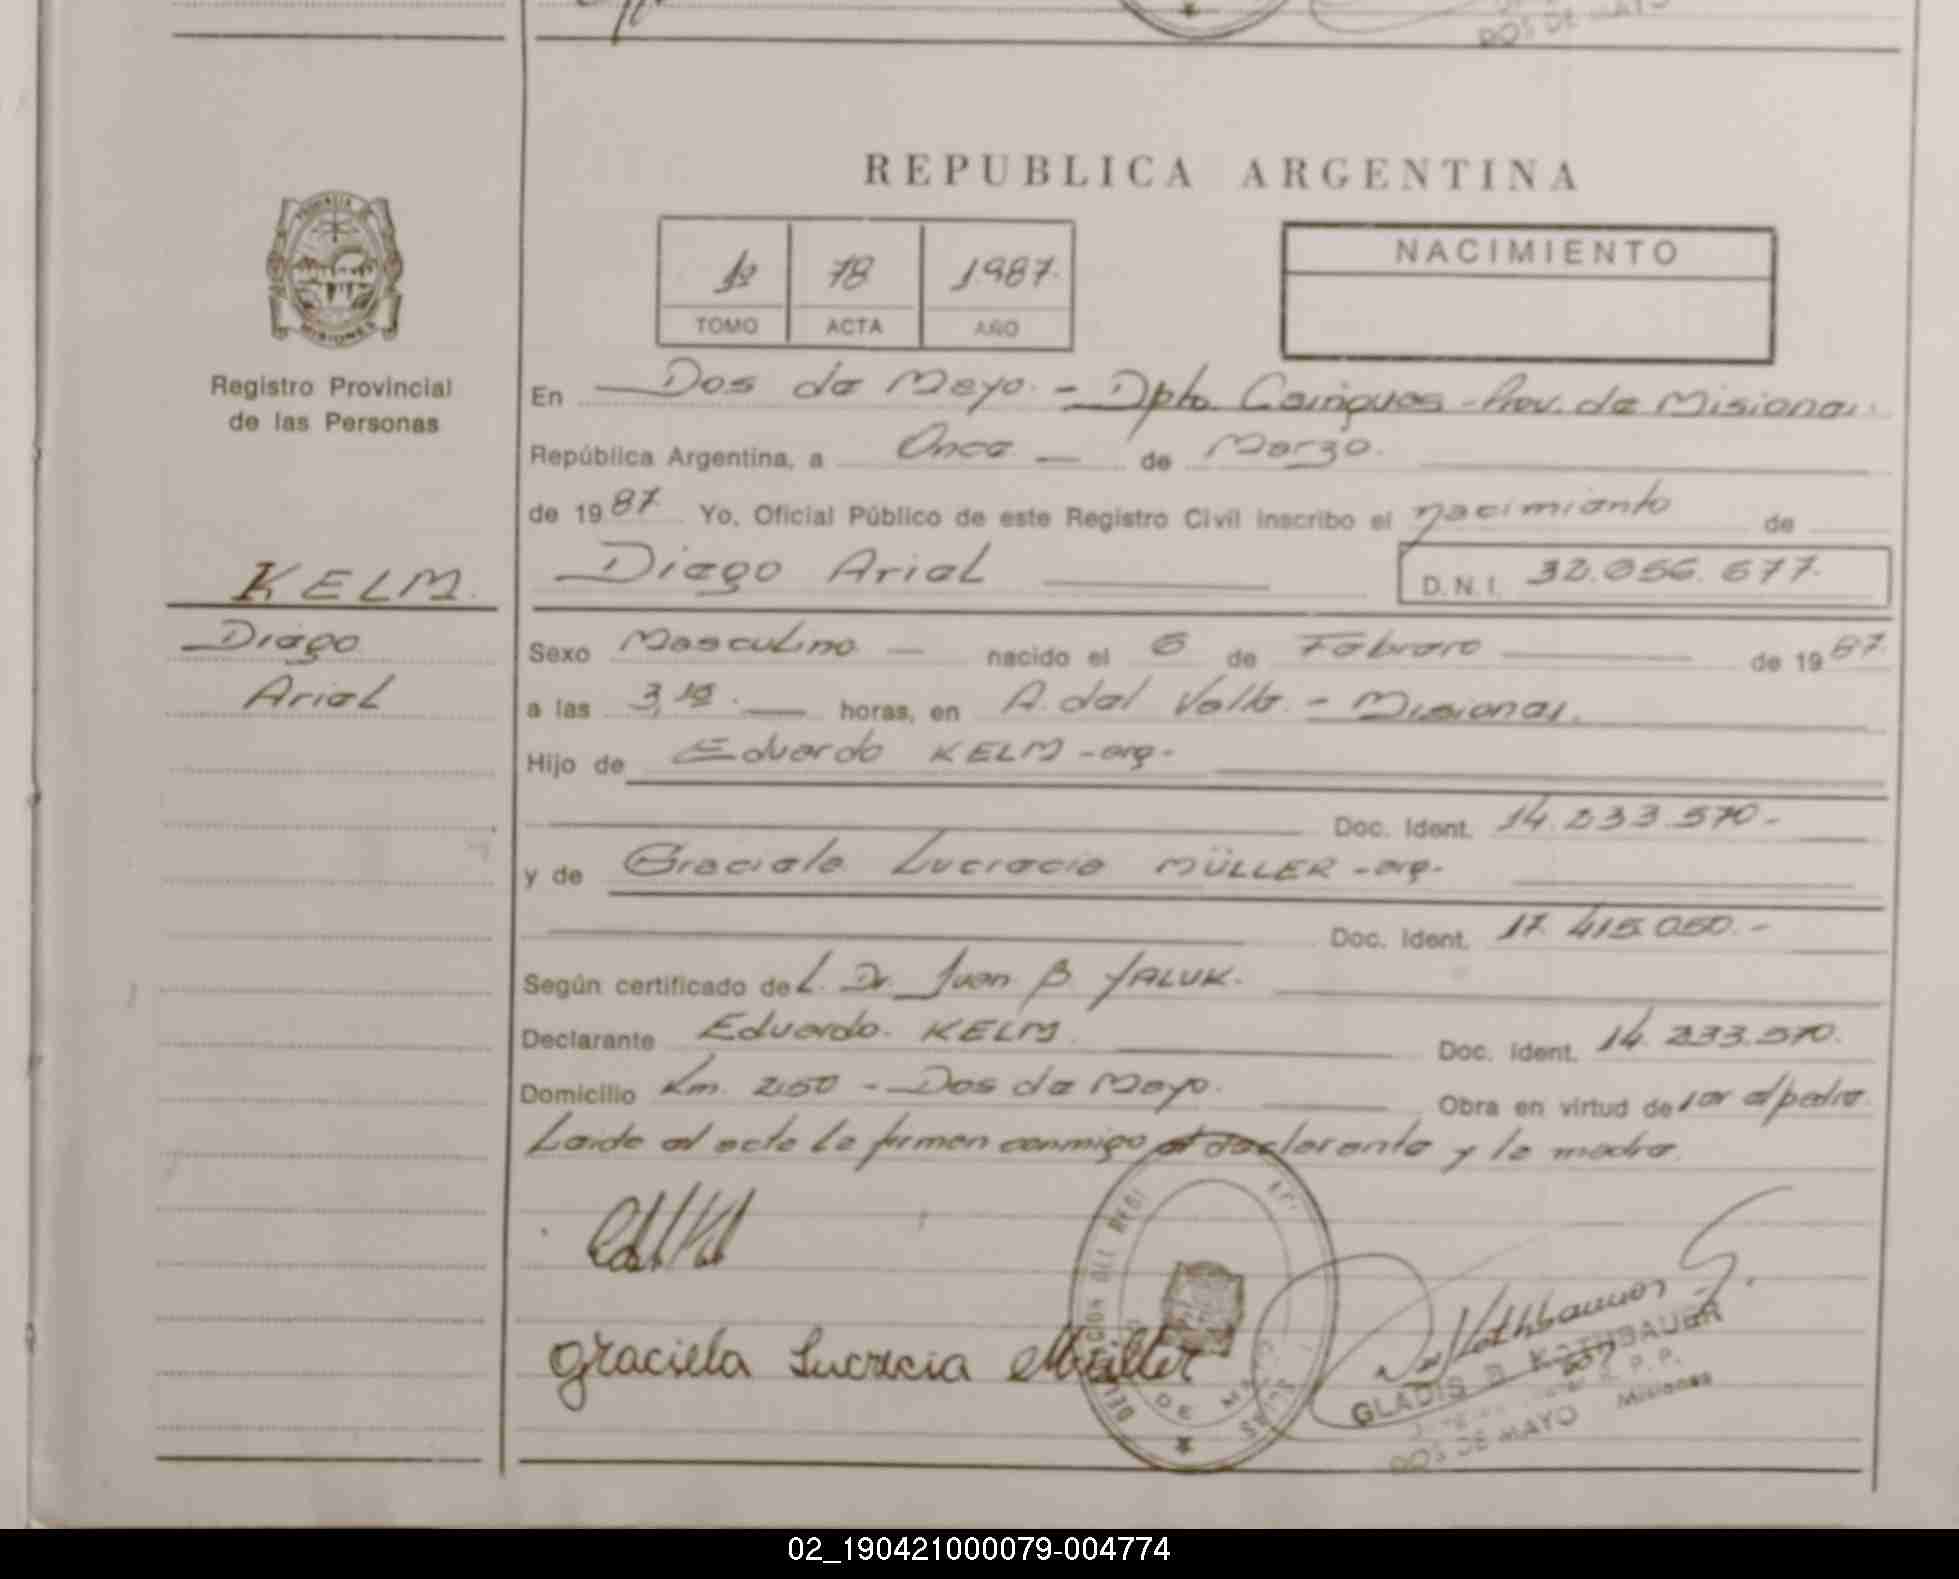 DOS DE MAYO
REPUBLICA ARGENTINA
NACIMIENTO
1º 78 1987.
TOMO ACTA AÑO
PROVINCIA DE
MISIONES
Registro Provincial
de las Personas
En Dos de Mayo. - Dpto. Cainguas - Prov. de Misiones.
República Argentina, a Once de Marzo.
de 1987. Yo, Oficial Público de este Registro Civil inscribo el nacimiento de
KELM. Diego Ariel D.N.I. 32.056.677.
Diego
Ariel
Sexo Masculino nacido el 6 de Febrero de 1987.
a las 3,10. horas, en A. del Valle. - Misiones.
Hijo de Eduardo KELM - arg-
Doc. Ident. 14.233.570-
y de Graciela Lucrecia MÜLLER - arg-
Doc. Ident. 17.415.050.-
Según certificado de L. Dr. Juan B YALUK.
Declarante Eduardo. KELM. Doc. Ident. 14.233.570.
Domicilio Km. 250 - Dos de Mayo. Obra en virtud de ser el padre.
Leída el acta la firman conmigo el declarante y la madre.
Graciela Lucrecia Müller
GLADIS B KOTHBAUER
R. P. P.
DOS DE MAYO Misiones
02_190421000079-004774